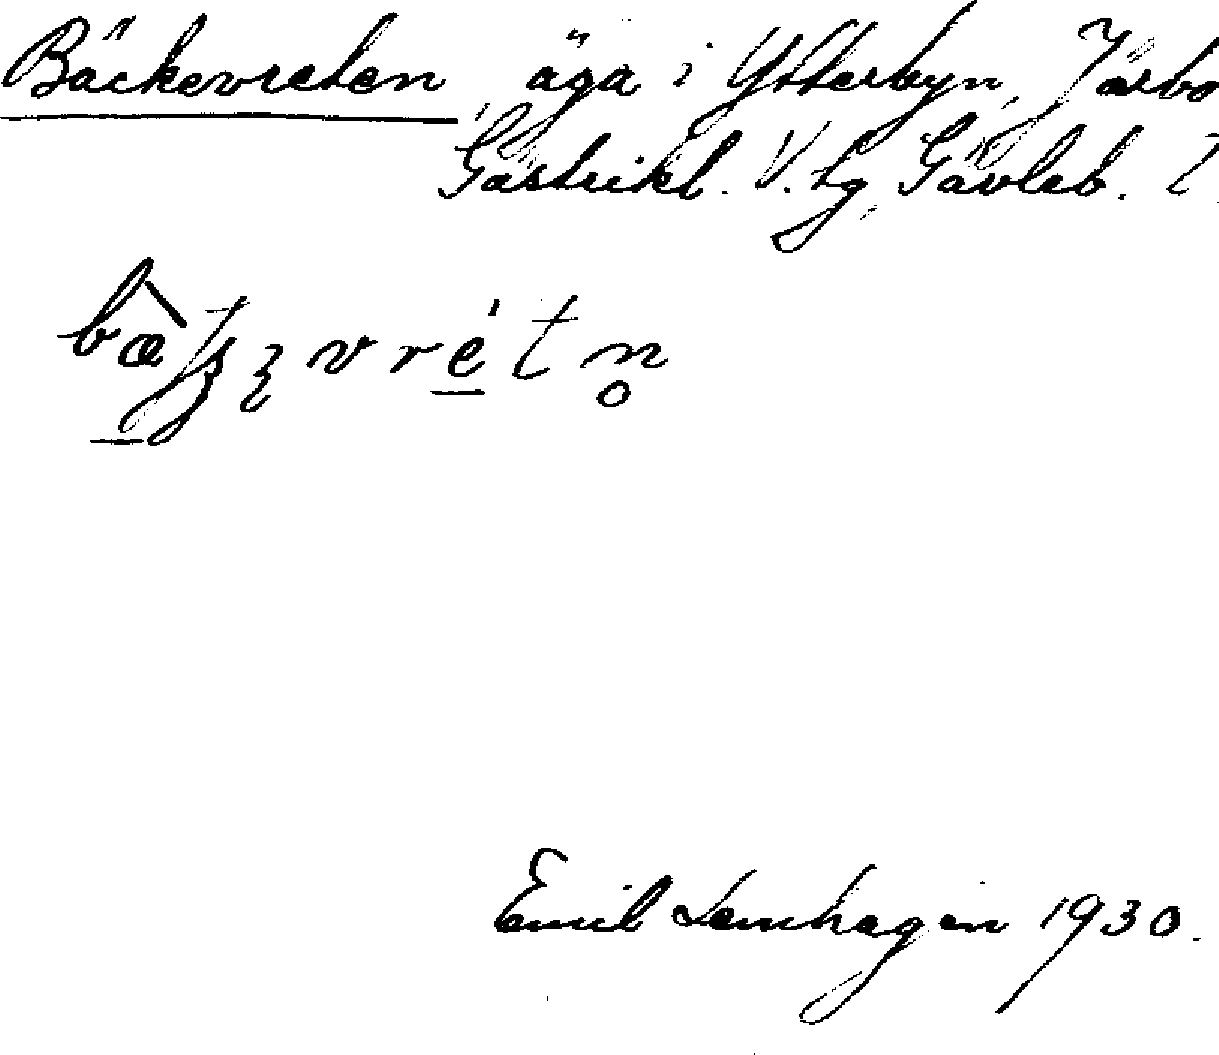 Bäckevreten äga i Ytterbyn, Järbo
Gästrikl. V. tg, Gävleb. l.
Emil Lemhagen 1930.